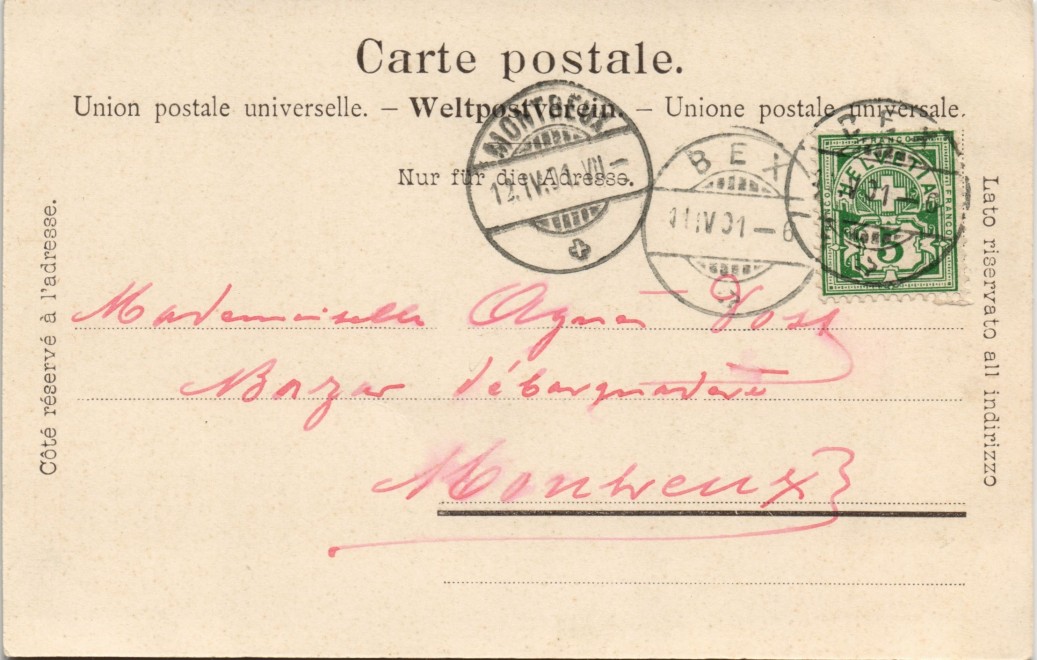 Carte postale.
Union postale universelle. – Weltpostverein. – Unione postale universale.
Nur für die Adresse.
Côté réservé à l'adresse.
Lato riservato all indirizzo
MONTREUX
12.IV.01.VII–
BEX
11.IV.01–6
BEX
HELVETIA
FRANCO
5
Mademoiselle Agnes
Bazar débarquadère
Montreux